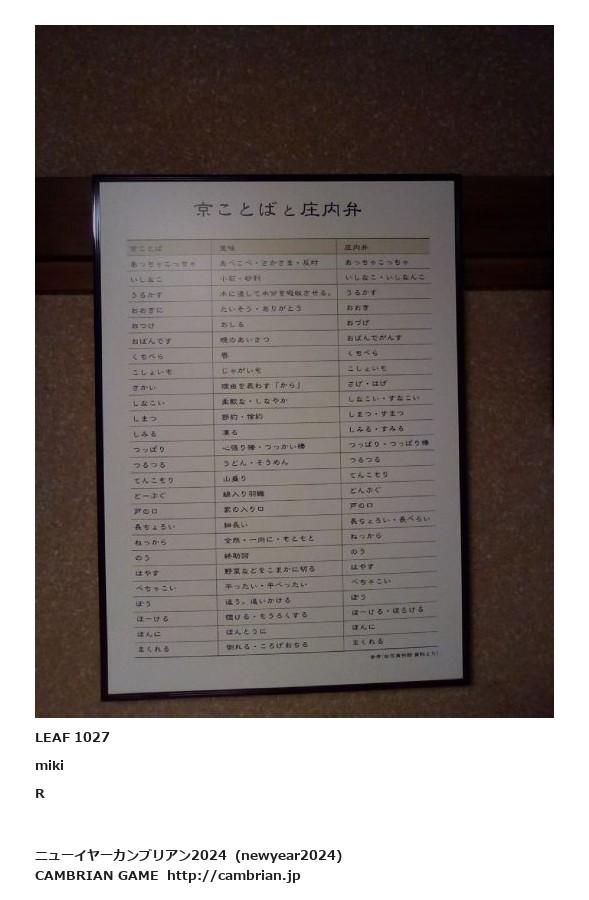 京ことばと庄内弁
京ことば 意味 庄内弁
あっちゃこっちゃ あべこべ・さかさま・反対 あっちゃこっちゃ
いしなご 小石・砂利 いしなご・いしなんこ
うるかす 水に浸して水分を吸収させる。 うるかす
おおきに たいそう・ありがとう おおき
おつけ おしる おづげ
おばんです 晩のあいさつ おばんでがんす
くちべら 唇 くちべら
こしょいも じゃがいも こしょいも
さかい 理由を表わす「から」 さげ・はげ
しなこい 柔軟な・しなやか しなこい・すなこい
しまつ 節約・倹約 しまつ・すまつ
しみる 凍る しみる・すみる
つっぱり 心張り棒・つっかい棒 つっぱり・つっぱり棒
つるつる うどん・そうめん つるつる
てんこもり 山盛り てんこもり
どーぶぐ 綿入り羽織 どんぶぐ
戸の口 家の入り口 戸の口
長ちょろい 細長い 長ちょろい・長べろい
ねっから 全然・一向に・もともと ねっから
のう 終助詞 のう
はやす 野菜などをこまかに切る はやす
べちゃこい 平ったい・平べったい べちゃこい
ぼう 追う。追いかける ぼう
ほーける 惚ける・もうろくする ほーける・ほろける
ほんに ほんとうに ほんに
まくれる 倒れる・ころげおちる まくれる
LEAF 1027
miki
R
ニューイヤーカンブリアン2024 (newyear2024)
CAMBRIAN GAME http://cambrian.jp